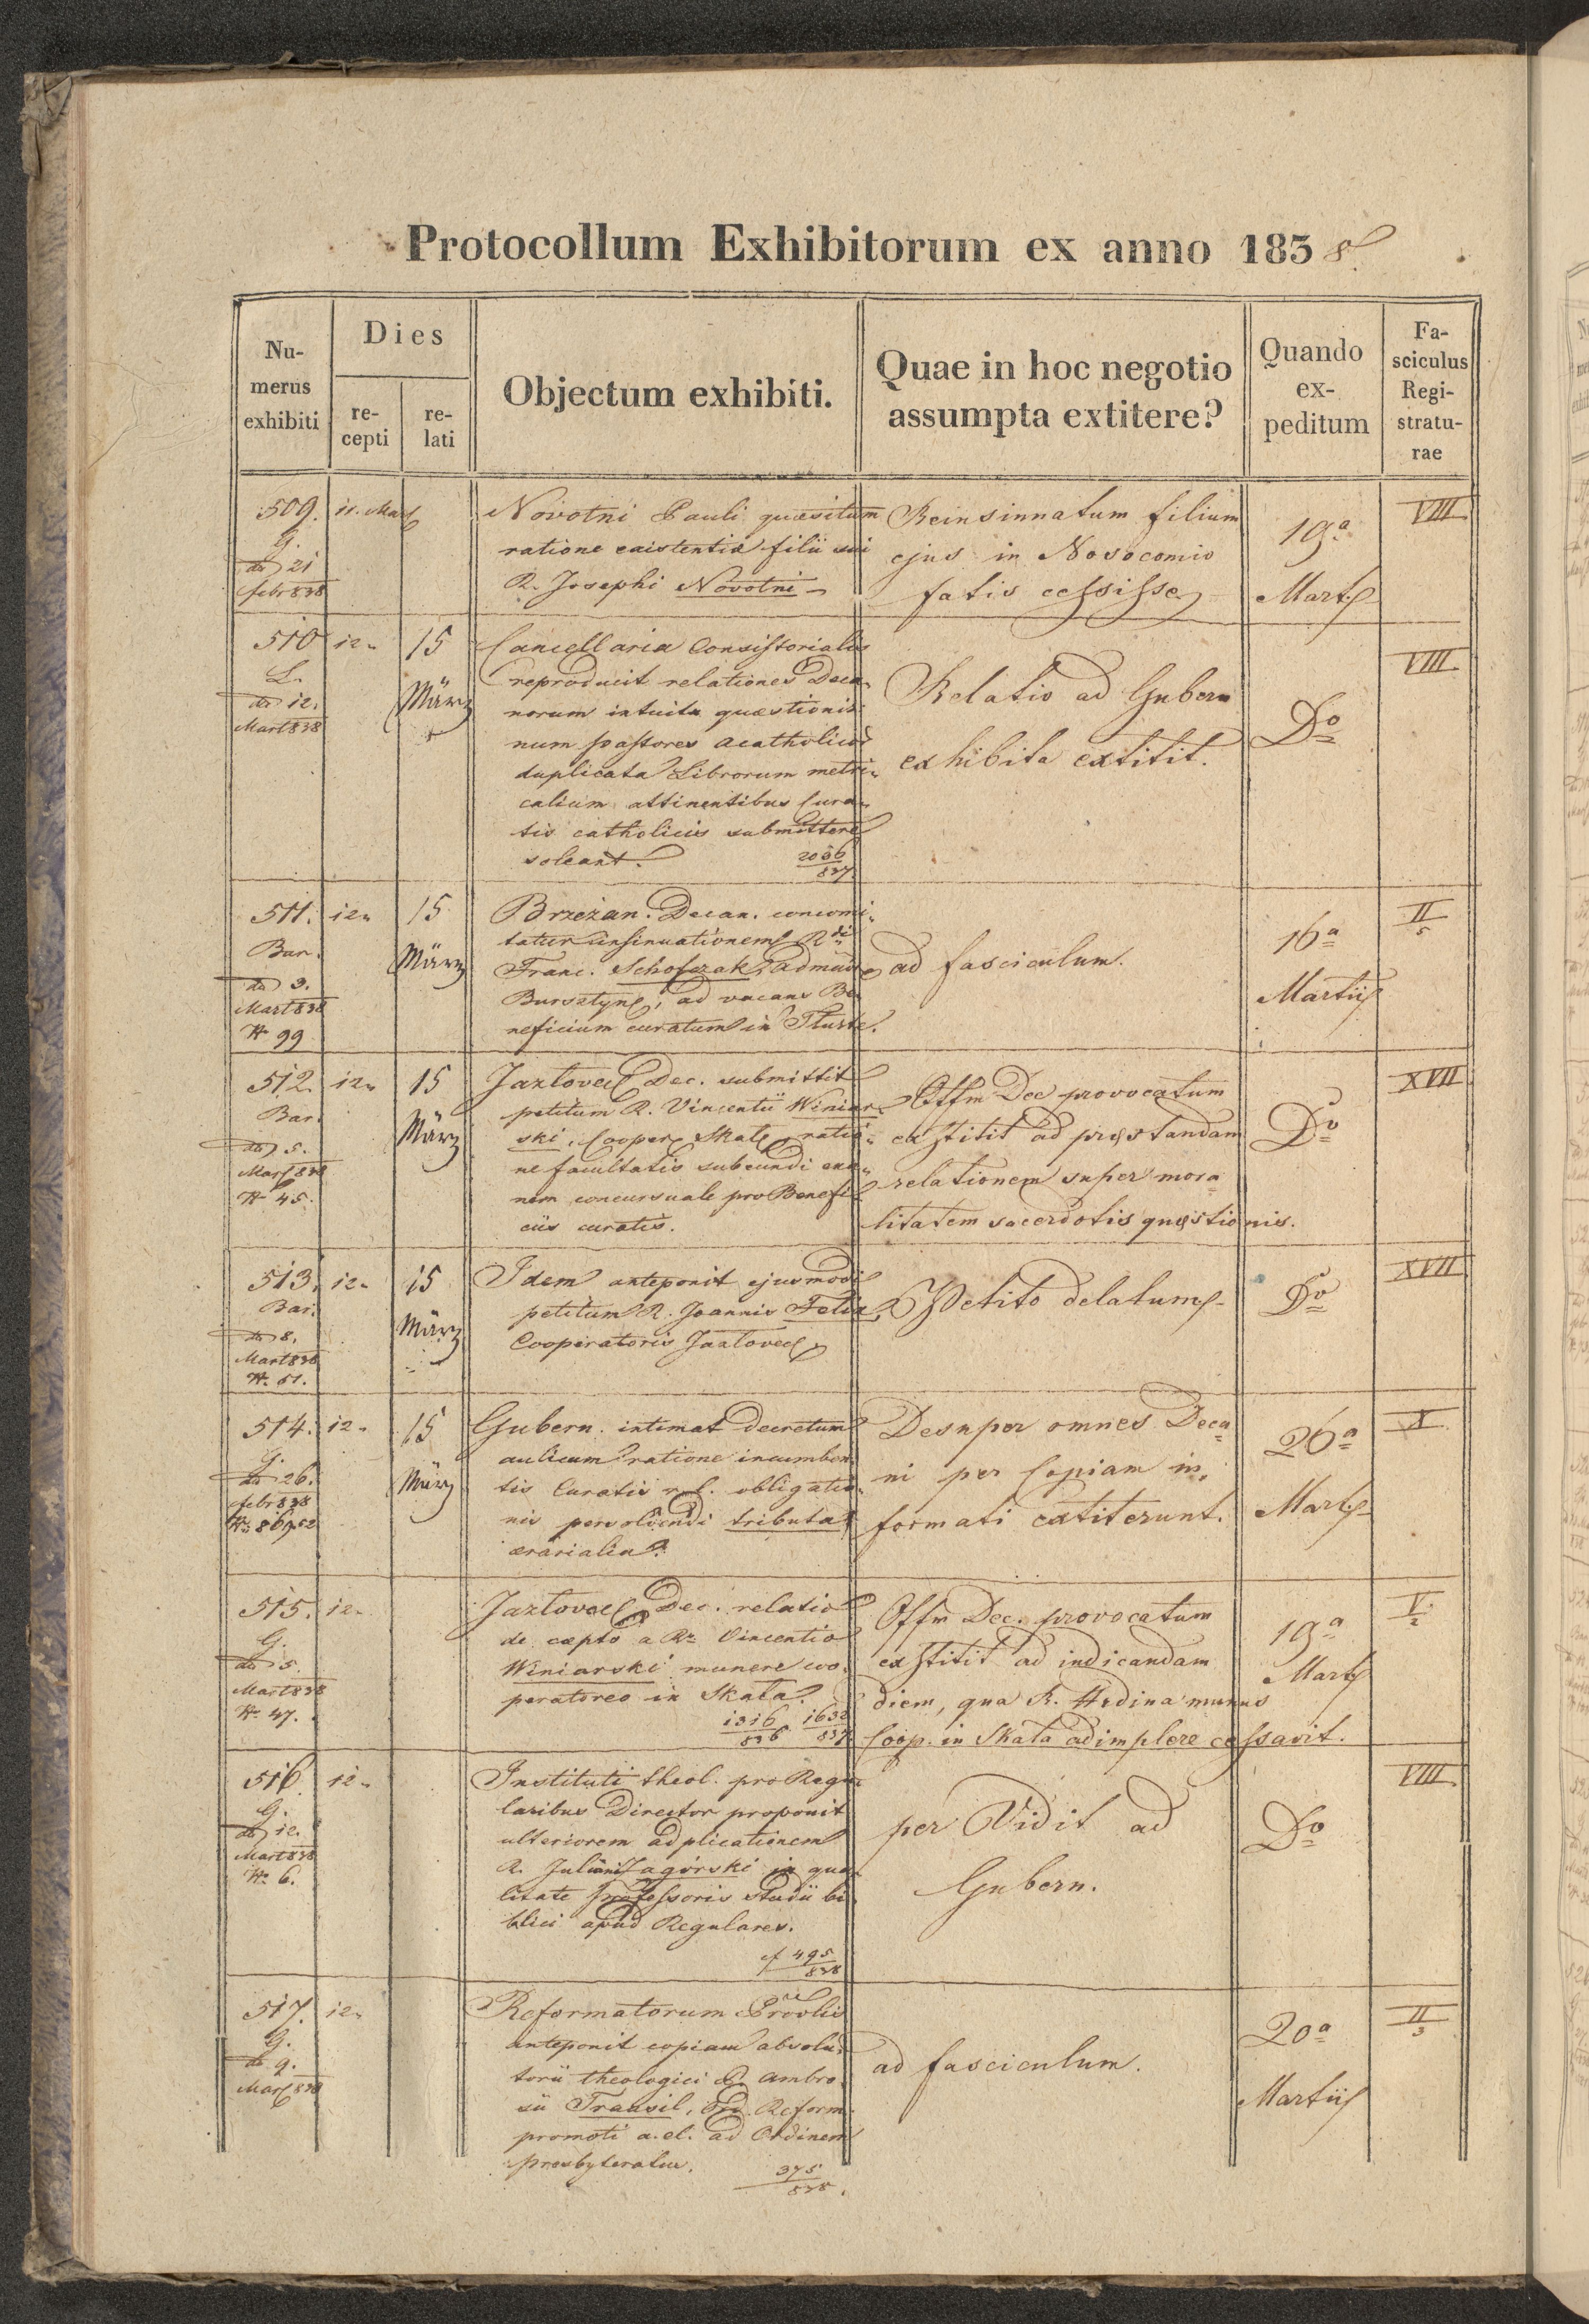 Protocollum Exhibitorum ex anno 1838.
Nu-
merus
exhibiti
Dies
re-
cepti
re-
lati
Objectum exhibiti.
Quae in hoc negotio
assumpta extitere?
Quando
ex-
peditum
Fa-
sciculus
Regi-
stratu-
rae
509.
G.
dto 21
febr 838
12. Mart
Novotni Pauli quæsitum
ratione existentiæ filii sui
R. Josephi Novotni
Reinsinnatum filium
ejus in Nosocomio
fatis cessisse
19a
Martii
VIII
510
L.
dto 12.
Mart 838
12
15
März
Cancellaria Consistorialis
reproducit relationes Deca-
norum intuitu quæstionis
num pastores acatholici
duplicata Librorum metri-
calium attinentibus Cura-
tis catholicis submittere
soleant.
2036
837
Relatio ad Gubern
exhibita extitit.
Do
VIII
511.
Bar.
dto 3.
Mart 838
N 99
12
15
März
Brzeżan. Decan. concomi-
tatur insinuationem Rdi
Franc. Schofczak, admin
Bursztyn, ad vacans Be-
neficium curatum in Tluste.
ad fasciculum.
16a
Martii
II
5
512.
Bar.
dto 5.
Mart 838
N 45.
12
15
März
Jazlovec Dec. submittit
petitum R. Vincentii Winiar-
ski, Cooper Skale, ratio-
ne facultatis subeundi exa-
nem concursuale pro Benefi-
ciis curatis.
Offm Dec provocatum
exstitit ad præstandam
relationem super mora
litatem sacerdotis quæstionis.
Do
XVII
513.
Bar.
dto 8.
Mart 838
N. 51.
12
15
März
Idem anteponit ejusmodi
petitum R. Joannis Felix
Cooperatoris Jazlovec
Petito delatum
Do
XVII
514.
G.
dto 26.
febr 838
N. 86952
12
15
März
Gubern. intimat decretum
aulicum ratione incumben-
tis Curatis r. l. obligatio-
nis persolvendi tributa
ærarialia.
Desuper omnes Deca
ni per Copiam in
formati extiterunt.
26a
Martii
X
515.
G.
dto 5.
Mart 838
N. 47.
12
Jazlovec Dec. relatio
de cæpto a R. Vincentio
Winiarski munere coo-
peratoreo in Skala.
1316
836
1632
837
Offm Dec. provocatum
exstitit ad indicandam
diem, qua R. Hrdina munus
Coop. in Skala adimplere cessavit.
19a
Martii
V
2
516.
G.
dto 12.
Mart 838
N. 6.
12
Instituti theol. pro Regu-
laribus Director proponit
ulteriorem adplicationem
R. Juliani Zagórski in qua-
litate professoris studii bi-
blici apud Regulares.
cf 495
838
per Vidit ad
Gubern.
Do
VIII
517.
G.
dto 9.
Mart 838
12
Reformatorum Provlis
anteponit copiam absolu-
torii theologici P. Ambro-
sii Traxil, Ord. Reform.
promoti a. el. ad Ordinem
presbyteratus.
375
838.
ad fasciculum.
20a
Martii
II
3